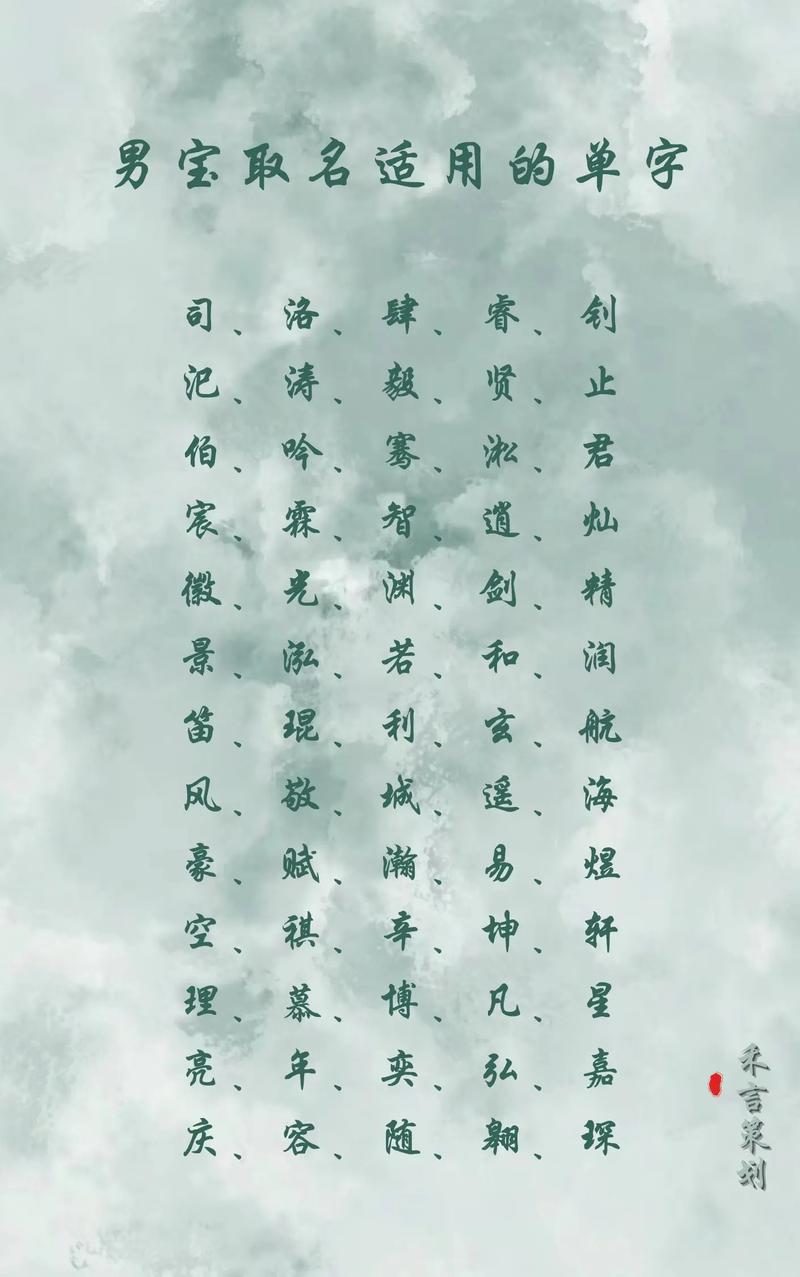 男宝取名适用的单字
司、洛、肆、睿、钊
汜、涛、毅、贤、止
伯、吟、骞、淞、君
宸、霖、智、逍、灿
徽、光、渊、剑、精
景、泓、若、和、润
笛、琨、利、玄、航
风、敬、城、遥、海
豪、赋、瀚、易、煜
空、祺、辛、坤、轩
理、慕、博、凡、星
亮、年、奕、弘、嘉
庆、容、随、翱、琛
禾言策划